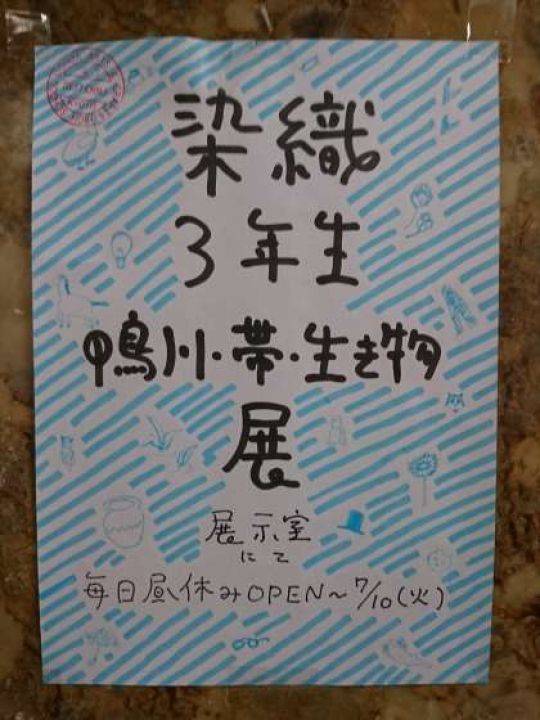 染織
3年生
鴨川・帯・生き物
展
展示室
にて
毎日昼休みOPEN〜7/10(火)